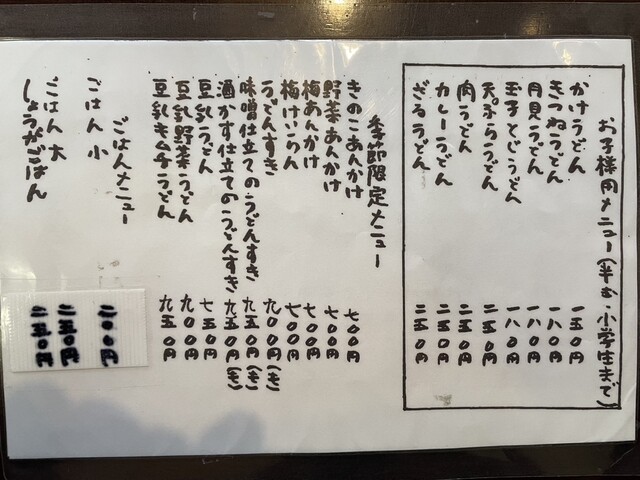 お子様用メニュー(半む、小学生まで)
かけうどん 一五0円
きつねうどん 一八0円
月見うどん 一八0円
玉子とじうどん 一八0円
天ぷらうどん 二五0円
肉うどん 二五0円
カレーうどん 二五0円
ざるうどん 二五0円
季節限定メニュー
きのこあんかけ 七00円
野菜あんかけ 七00円
梅あんかけ 七00円
梅けいらん 七00円
うどんすき 九00円(も)
味噌仕立てのうどんすき 九五0円(も)
酒かす仕立てのうどんすき 九五0円(も)
豆乳うどん 七五0円
豆乳野菜うどん 九00円
豆乳キムチうどん 九五0円
ごはんメニュー
ごはん 小 二00円
ごはん 大 二五0円
しょうがごはん 二五0円